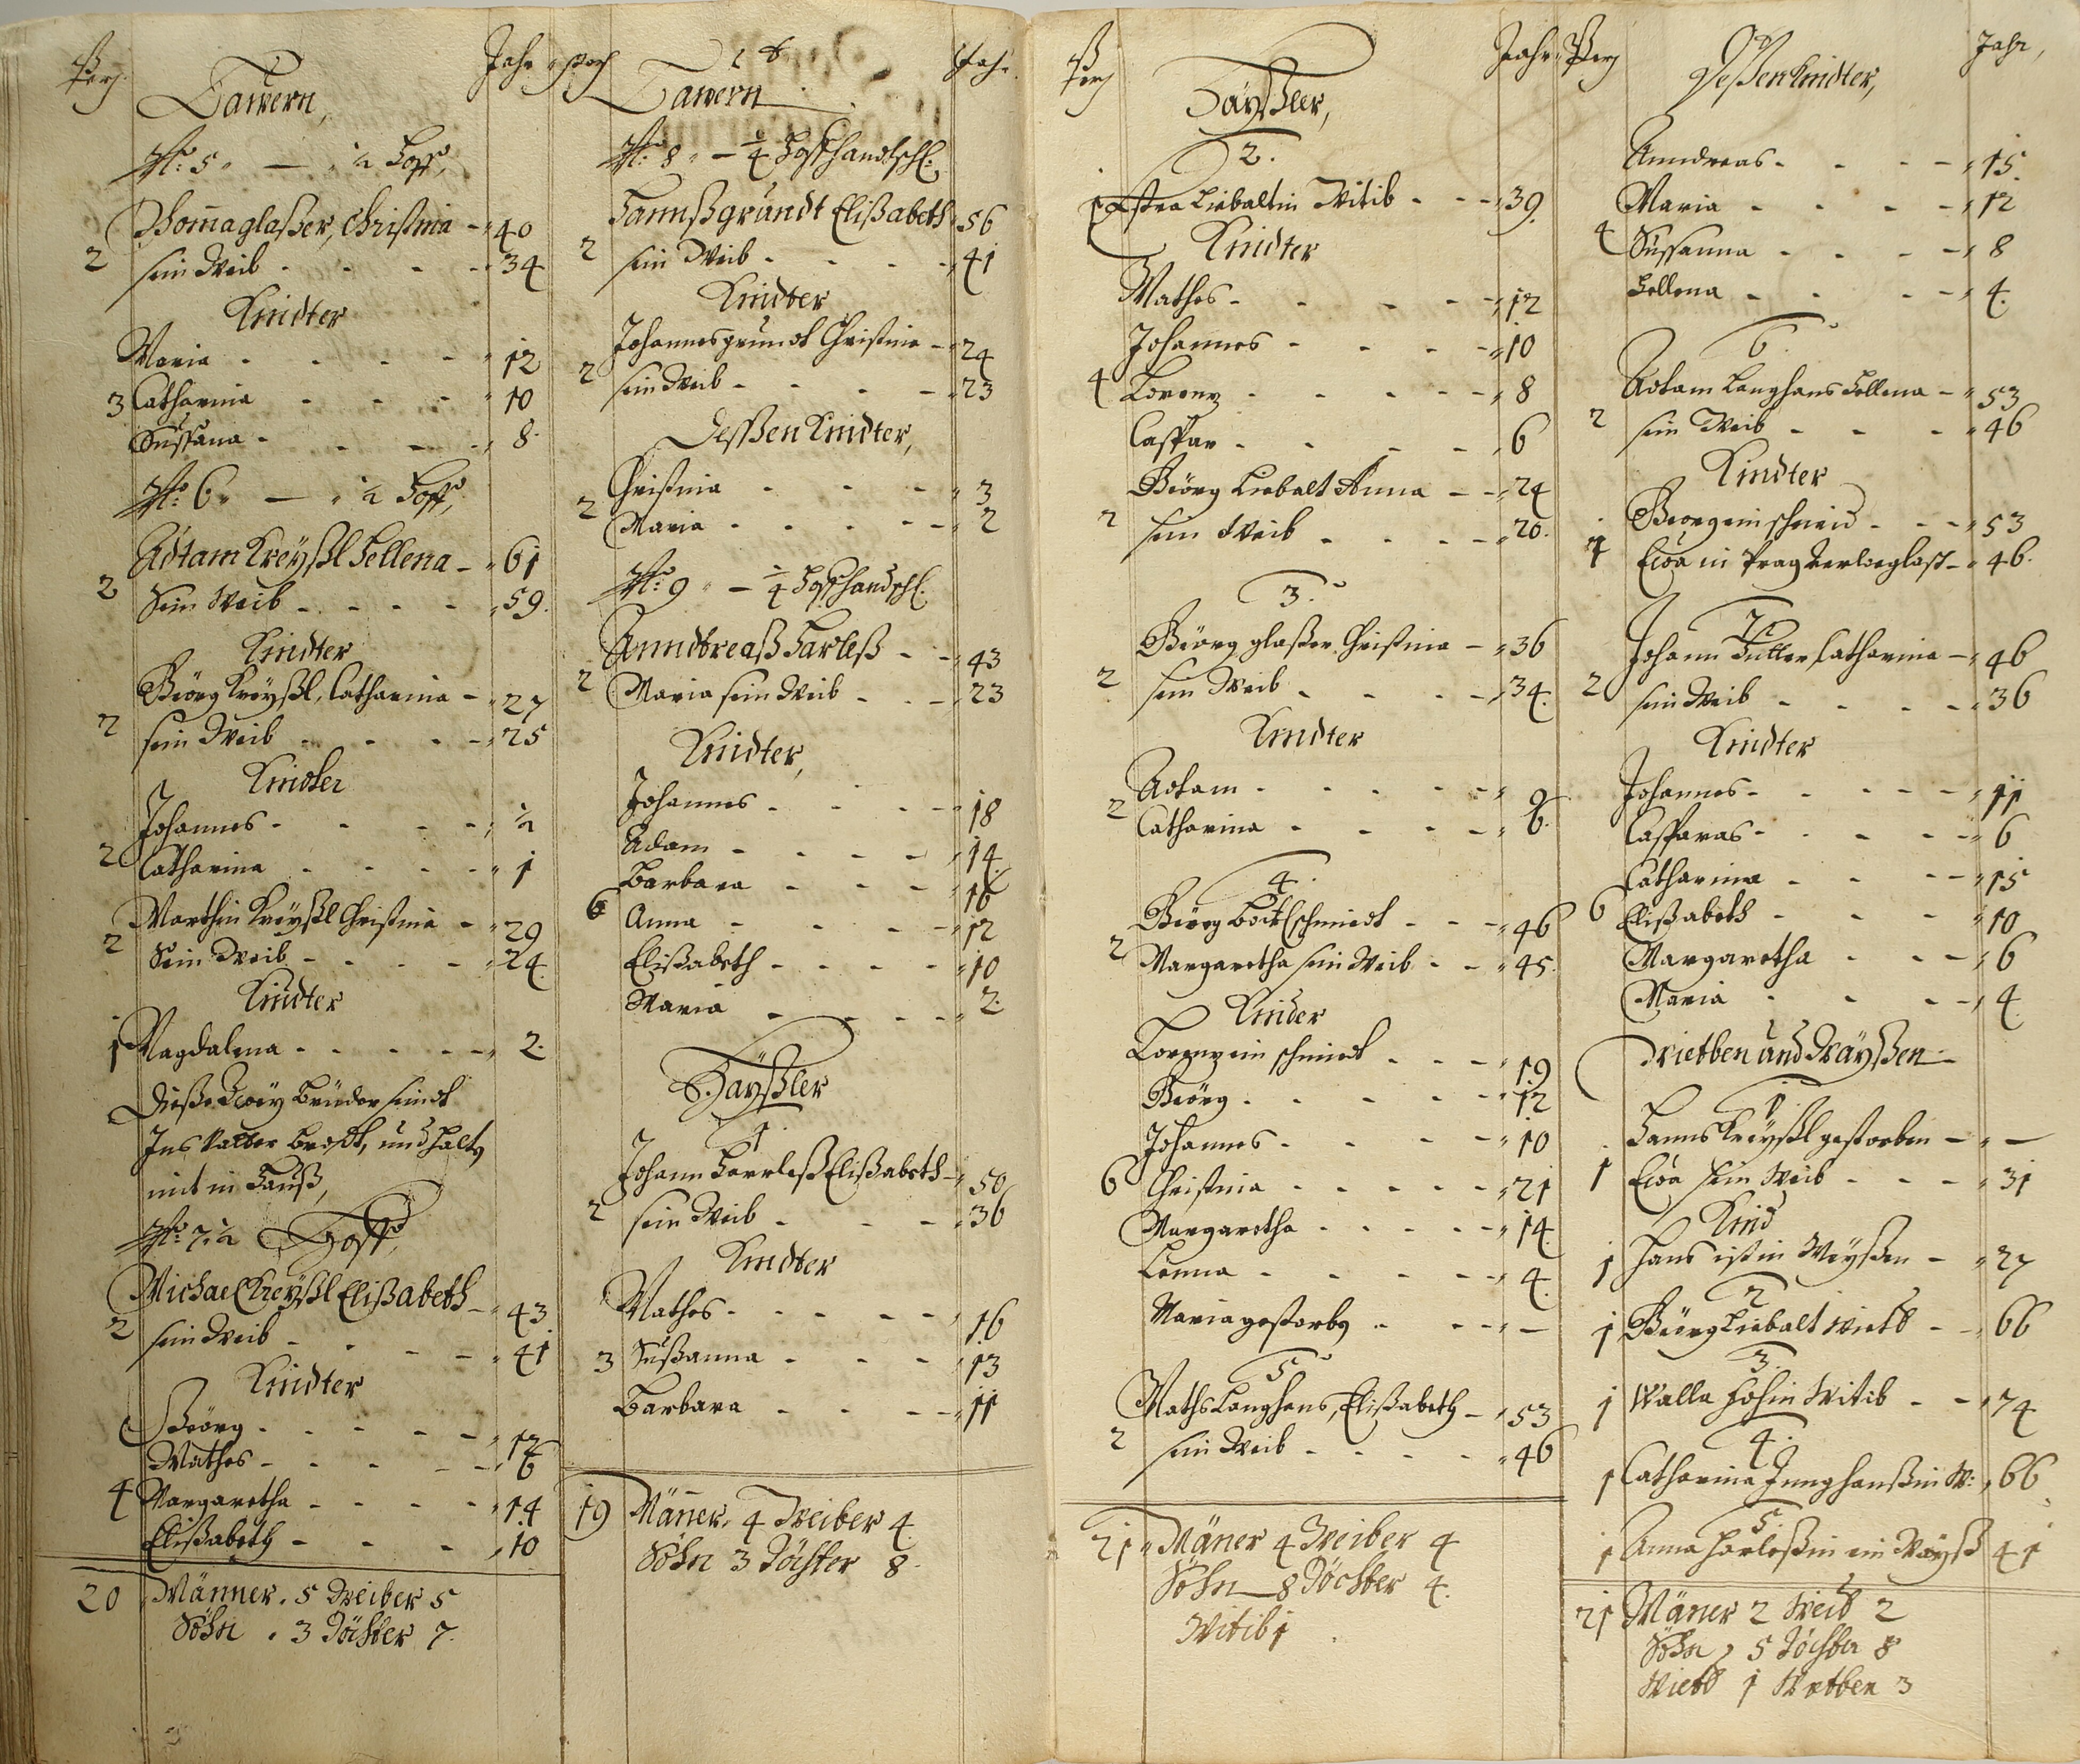 Perſ. Bawern, Jahr
No: 5. — ½ Hoff,
Thomaglaßer, Christina - 40
2 sein Weib - - - 34
Kindter
Maria - - - - 12
3 Catharina - - - 10
Sußana - - - - 8
No: 6. — ½ Hoff,
Adtam Kreyßl Hellena - 61
2 Sein Weib - - - - 59.
Kindter
Georg Kreyßl, Catharina - 27
2 sein Weib - - - - 25
Kindter
Johannes - - - - ½
2 Catharina - - - - 1
Marthin Kreyßl Christina - 29
2 Sein Weib - - - - 24
Kindter
1 Magdalena - - - - 2.
Dieße Zwey Brüder seindt
Ins Vatter Brodt, und halt
mit in Hauß,
No: 7. ½ Hoff,
Michael Kreyßl Elißabeth - 43
2 sein Weib - - - - 41
Kindter
Georg - - - - 12
Mathes - - - - 6
4 Margaretha - - - - 14
Elißabeth - - - - 10
20 Männer. 5 Weiber 5
Söhn . 3 Töchter 7.
Perſ Bawern Jahr
No: 8. - ¼
Hannßgrundt Elißabeth 56
2 sein Weib - - - - 41
Kindter
Johannesgrundt Christina - 24
2 sein Weib - - - - 23
Deßßen Kindter,
Christina - - - - 3
2 Maria - - - - 2
No: 9 - ¼
Anndreaß Harleß - - 43
2 Maria sein Weib - - 23
Kindter,
Johannes - - - - 18
Adam - - - - 14
Barbara - - - 16
6 Anna - - - - 12
Elißabeth - - - - 10
Maria - - - - 2.
Häyßler
1
Johann Harleß Elißabeth - 50
2 sein Weib - - - 36
Kindter
Mathes - - - - 16
3 Sußanna - - - 13
Barbara - - - - 11
19 Männer. 4 Weiber 4
Söhn 3 Töchter 8.
Perſ Häyßler, Jahr
2.
1 Liebaltin Witib - - 39.
Kindter
Mathes - - - - 12
Johannes - - - - 10
4 Lorenz - - - - 8
Caspar - - - - 6
Georg Liebalt Anna - - 24
2 sein Weib - - - - 20.
3.
Georg glaßer Christina - 36
2 sein Weib - - - - 34.
Kindter
Adtam - - - - 9
2 Catharina - - - - 6.
4.
Georg Böttlschmiedt - - 46
2 Margaretha sein Weib - - 45.
Kinder
Lorenz ein schmiedt - - - 19
Georg - - - - 12
Johannes - - - - 10
6 Christina - - - - 21
Margaretha - - - - 14
Lenna - - - - 4.
Maria gestorb - - - —
5
Maths Langhans, Elißabeth - 53
2 sein Weib - - - - 46
21 Mäner 4 Weiber 4
Söhn 8 Töchter 4.
Witib 1
Perſ Deßen Kindter, Jahr,
Anndreas - - - - 15.
Maria - - - - 12
4 Sußanna - - - - 8
Hellena - - - - 4.
6.
Adtam Langhans Hellena - 53
2 sein Weib - - - 46
Kindter
Georg ein schneid - - - 53
1 Ewa in Prag - 46.
7.
Johann Hutter Catharina - 46
2 sein Weib - - - - 36
Kindter
Johannes - - - - 11
Casparas - - - - 6
Catharina - - - - 15
6 Elißabeth - - - 10
Margaretha - - - 6
Maria - - - - 4
Wietben und Wäyßen
1
Hanns Kreyßl gestorben - —
1 Ewa sein Weib - - - 31
Kind
1 Hans ist in Meyßen - 27
2
1 Georg Liebalt Wietb - - 66
3.
1 Walla Witib - - 74
4.
1 Catharina Junghanßin W: 66
5.
1 Anna Harleßin ein Wayß 41
21 Mäner 2 Weib 2
Söhn, 5 Töchter 8
Wietb 1 Wetben 3